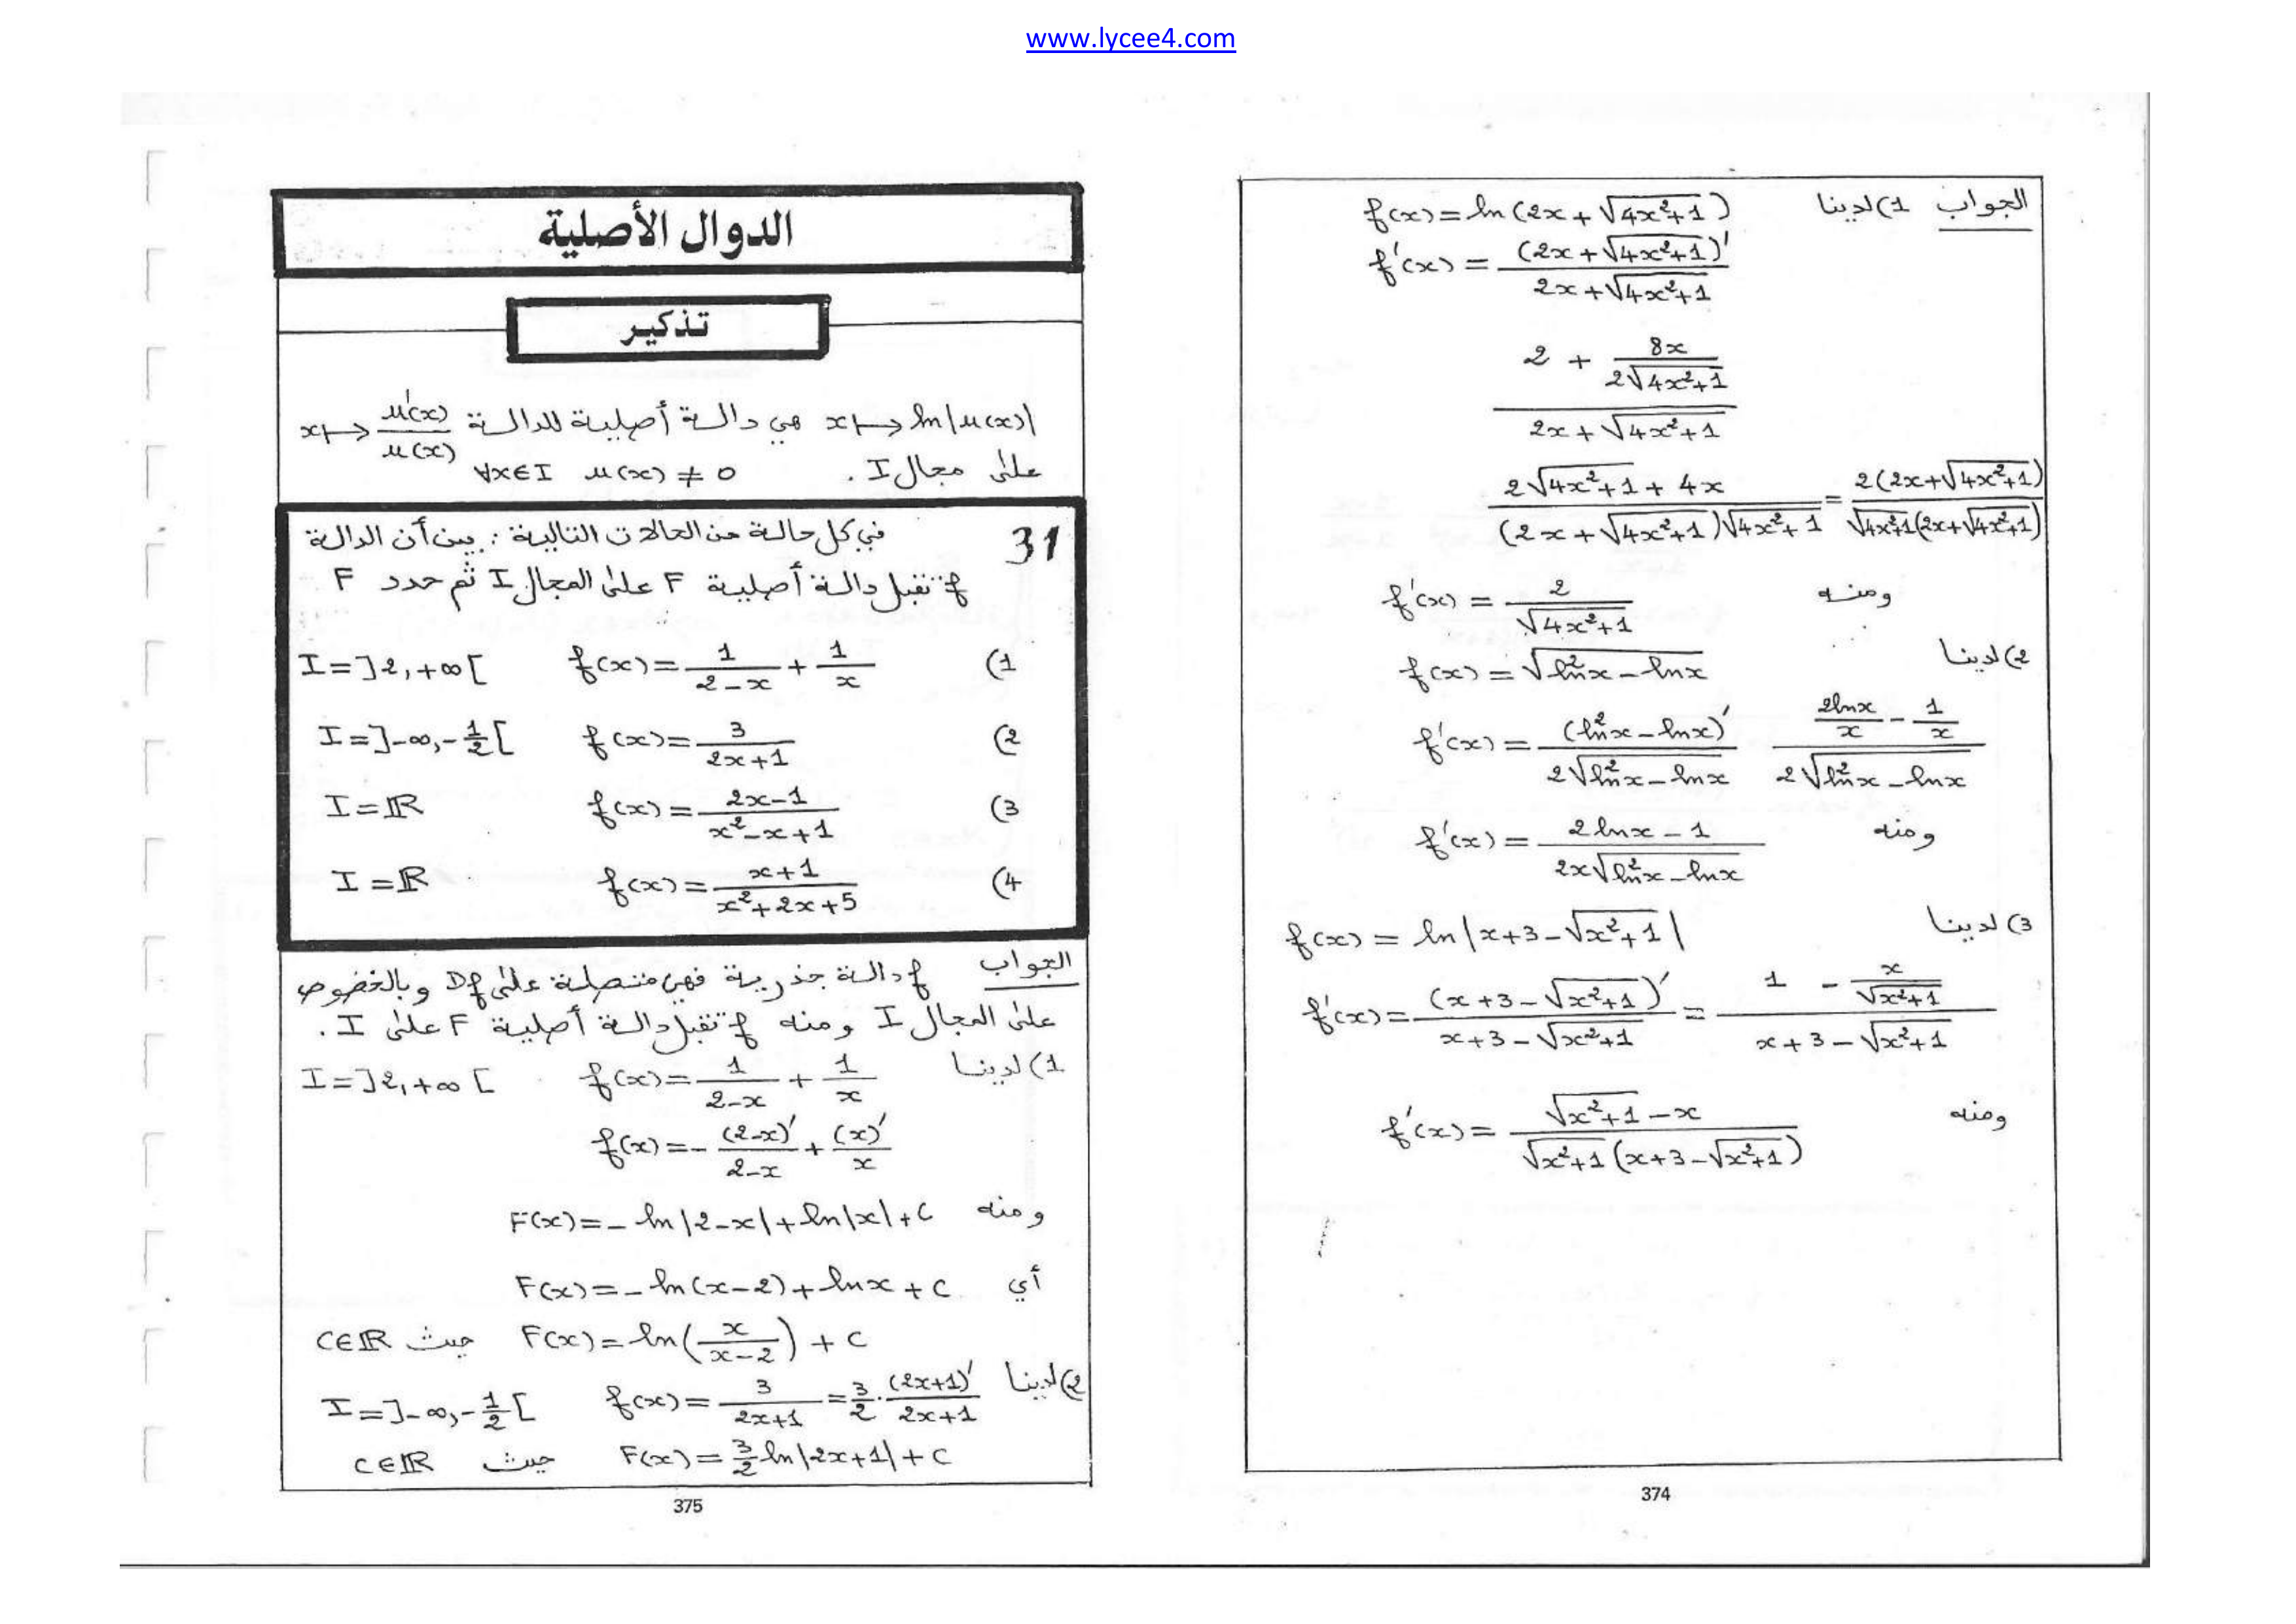 www.lycee4.com
الجواب 1) لدينا f(x) = ln(2x + √(4x²+1))
f'(x) = (2x + √(4x²+1))' / (2x + √(4x²+1))
(2 + 8x / (2√(4x²+1))) / (2x + √(4x²+1))
(2√(4x²+1) + 4x) / ((2x + √(4x²+1))√(4x²+1)) = 2(2x + √(4x²+1)) / (√(4x²+1)(2x + √(4x²+1)))
ومنه f'(x) = 2 / √(4x²+1)
2) لدينا f(x) = √(ln²x - lnx)
f'(x) = (ln²x - lnx)' / (2√(ln²x - lnx)) (2lnx/x - 1/x) / (2√(ln²x - lnx))
ومنه f'(x) = (2lnx - 1) / (2x√(ln²x - lnx))
3) لدينا f(x) = ln|x+3-√(x²+1)|
f'(x) = (x+3-√(x²+1))' / (x+3-√(x²+1)) = (1 - x/√(x²+1)) / (x+3-√(x²+1))
ومنه f'(x) = (√(x²+1) - x) / (√(x²+1)(x+3-√(x²+1)))
374
الدوال الأصلية
تذكير
x ↦ ln|u(x)| هي دالة أصلية للدالة x ↦ u'(x)/u(x)
على مجال I . ∀x∈I u(x) ≠ 0
31 في كل حالة من الحالات التالية : بين أن الدالة
f تقبل دالة أصلية F على المجال I ثم حدد F
1) f(x) = 1/(2-x) + 1/x I = ]2,+∞[
2) f(x) = 3/(2x+1) I = ]-∞,-1/2[
3) f(x) = (2x-1)/(x²-x+1) I = ℝ
4) f(x) = (x+1)/(x²+2x+5) I = ℝ
الجواب f دالة جذرية فهي متصلة على Df وبالخصوص
على المجال I ومنه f تقبل دالة أصلية F على I .
1) لدينا f(x) = 1/(2-x) + 1/x I = ]2,+∞[
f(x) = -(2-x)'/(2-x) + (x)'/x
ومنه F(x) = -ln|2-x| + ln|x| + c
أي F(x) = -ln(x-2) + lnx + c
F(x) = ln(x/(x-2)) + c حيث c∈ℝ
2) لدينا f(x) = 3/(2x+1) = 3/2 . (2x+1)'/(2x+1) I = ]-∞,-1/2[
F(x) = 3/2 ln|2x+1| + c حيث c∈ℝ
375